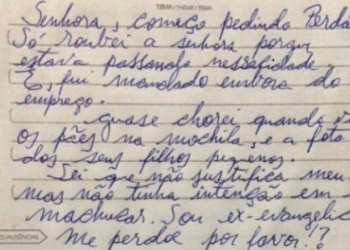 TEMA/THEME/TEMA
Senhora, começo pedindo Perdã
Só roubei a senhora porque
estava passando nessesidade.
E, fui mandado embora do
emprego.
quase chorei quando
os pães na mochila, e a foto
dos seus filhos pequenos.
Sei que não justifica meu
mas não tinha intenção em
machucar. Sou ex-evangelic
me perdoa por favor!?